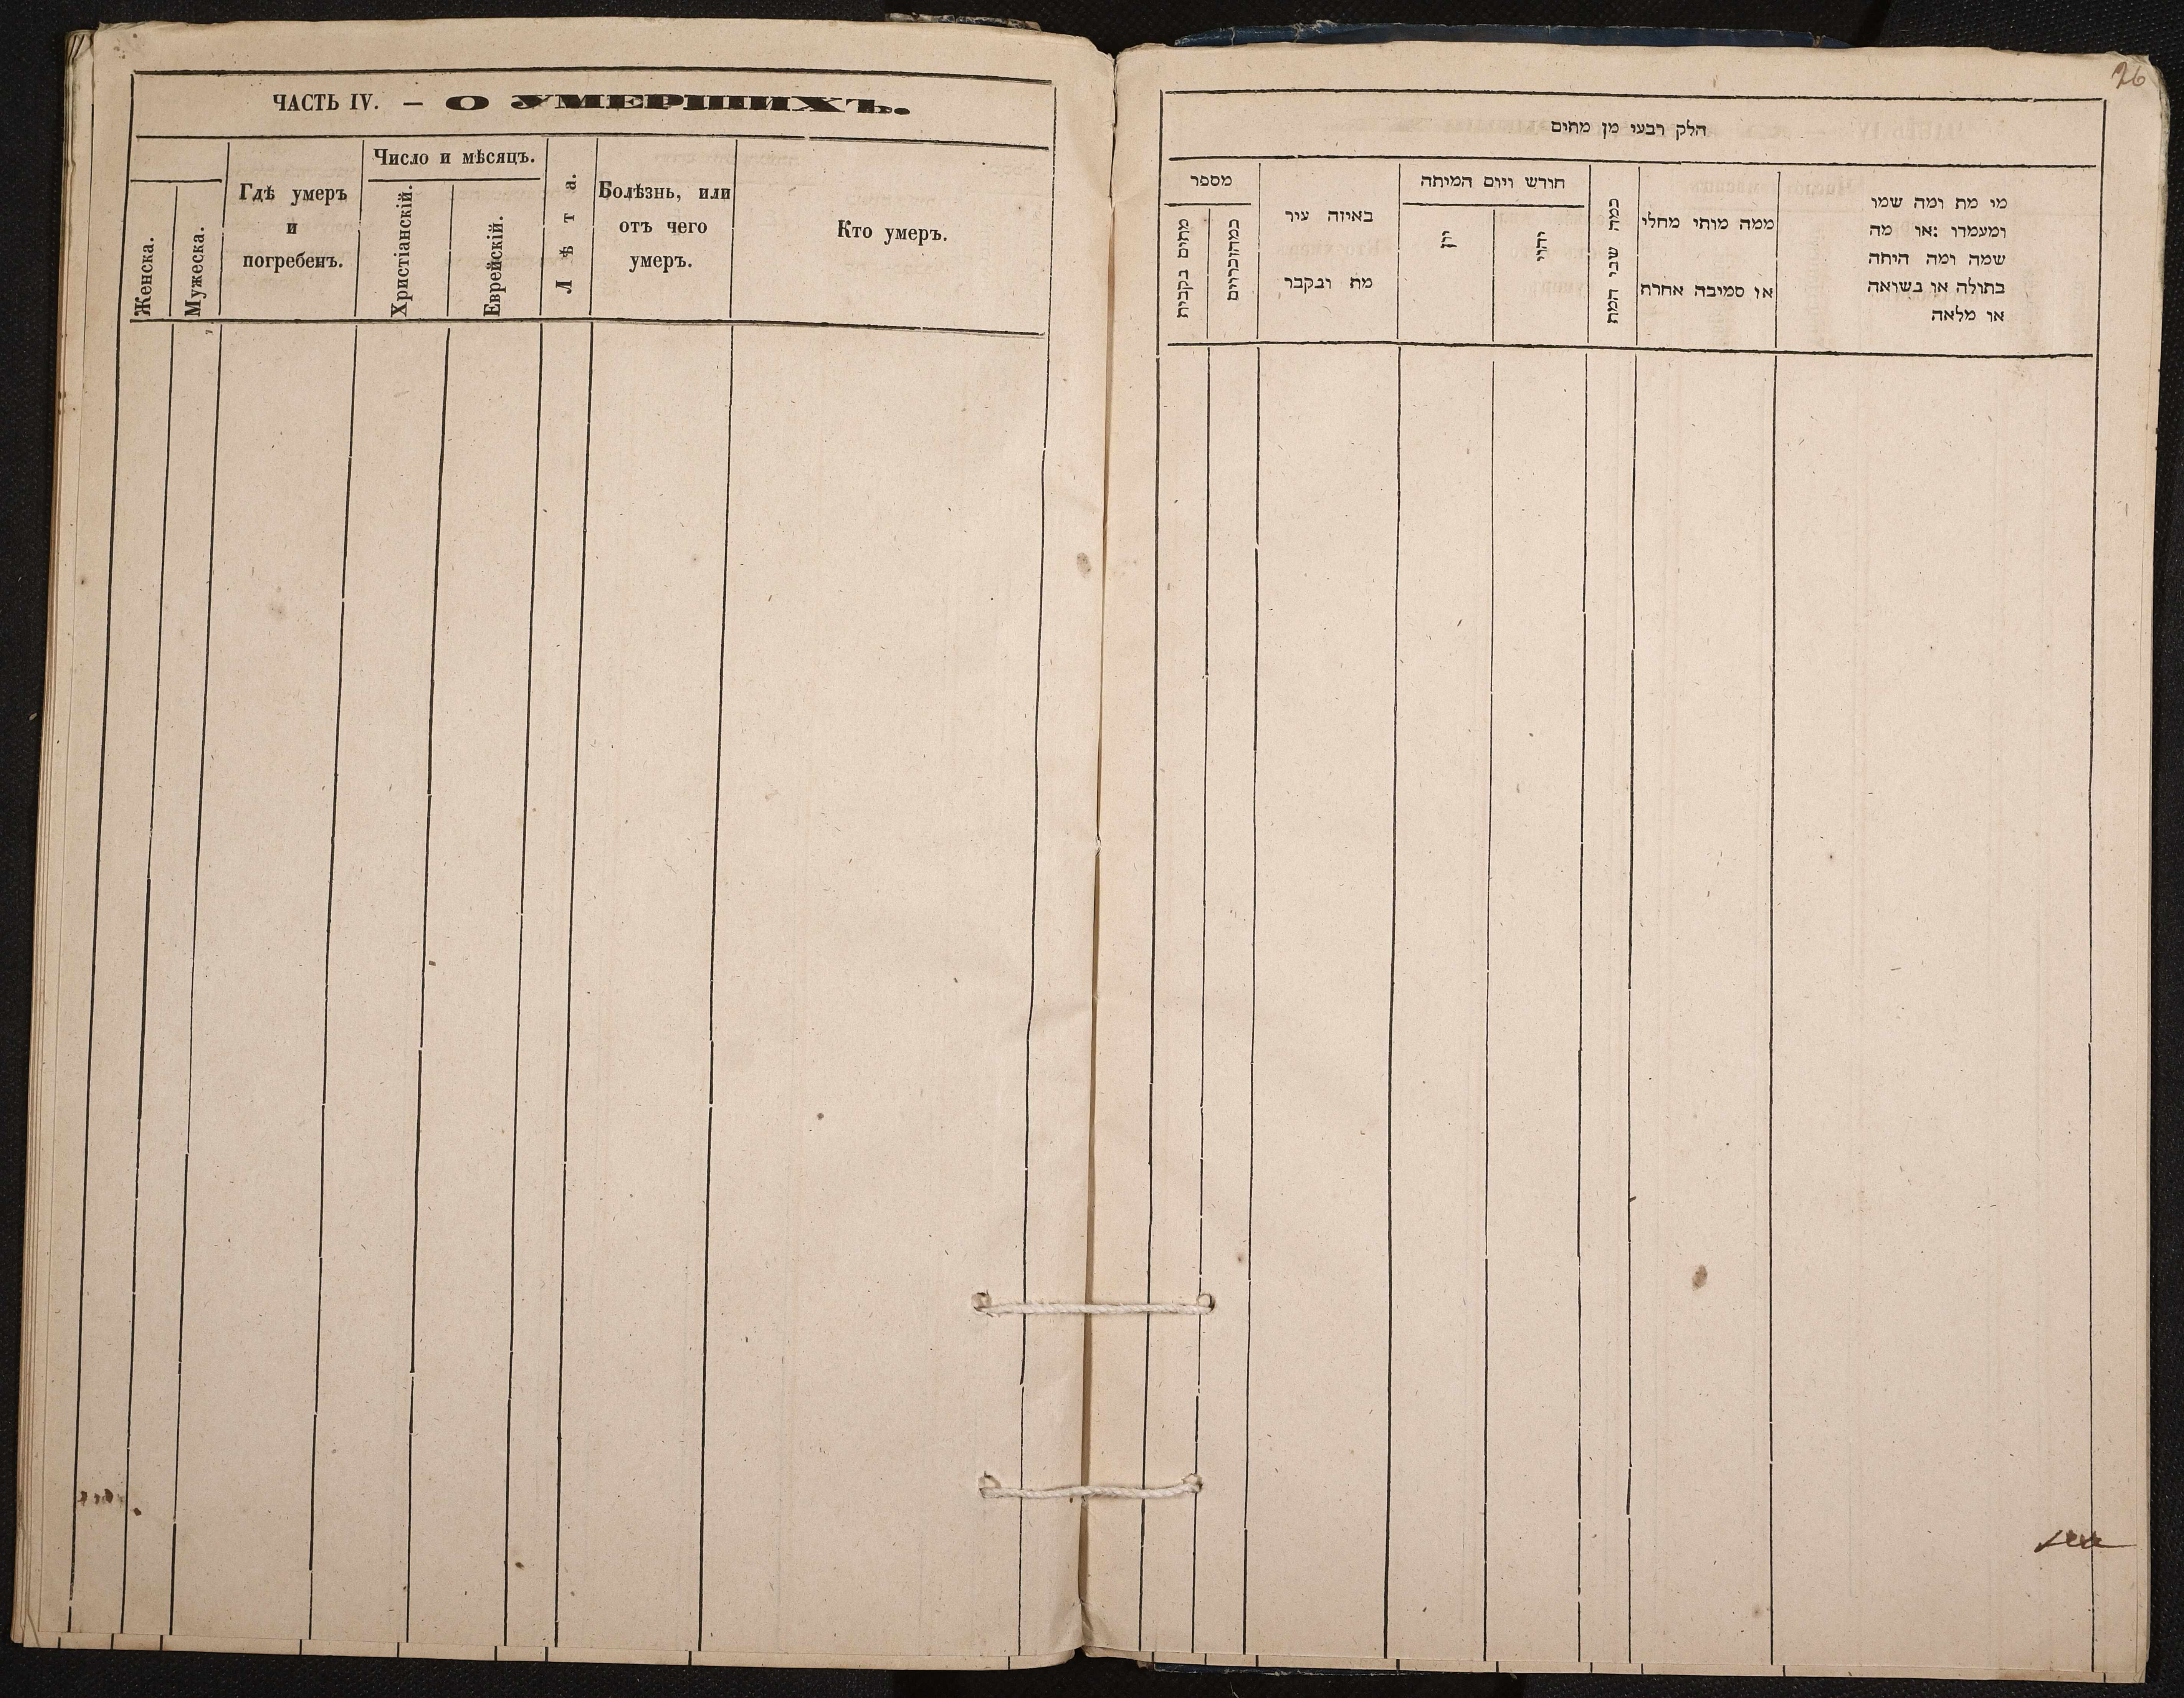 ЧАСТЬ IV. — О УМЕРШИХЪ.
Женска.
Мужеска.
Гдѣ умеръ
и
погребенъ.
Число и мѣсяцъ.
Христіанскій.
Еврейскій.
Лѣта.
Болѣзнь, или
отъ чего
умеръ.
Кто умеръ.
26
הלק רבעי מן מתים
מספר
מתים בקבית
במהזכריים
באיזה עיר
מת ונקבר
חודש ויום המיתה
יון
יהרי
כמה שבי המת
ממה מותי מחלי
או סמיבה אחרת
מי מת ומה שמו
ומעמדו :או מה
שמה ומה היתה
בתולה או בשואה
או מלאה